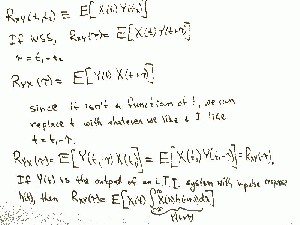 R_XY(t₁,t₂) ≡ E[X(t₁)Y(t₂)]
If WSS, R_XY(τ) = E[X(t) Y(t+τ)]
τ = t₁ - t₂
R_YX(τ) = E[Y(t) X(t+τ)]
since it isn't a function of t, we can
replace t with whatever we like & I like
t = t₁-τ.
R_YX(τ) = E[Y(t₁-τ) X(t₁)] = E[X(t₁) Y(t₁-τ)] = R_XY(-τ).
If Y(t) is the output of an L.T.I. system with impulse response
h(t), then R_XY(τ) = E[X(t)